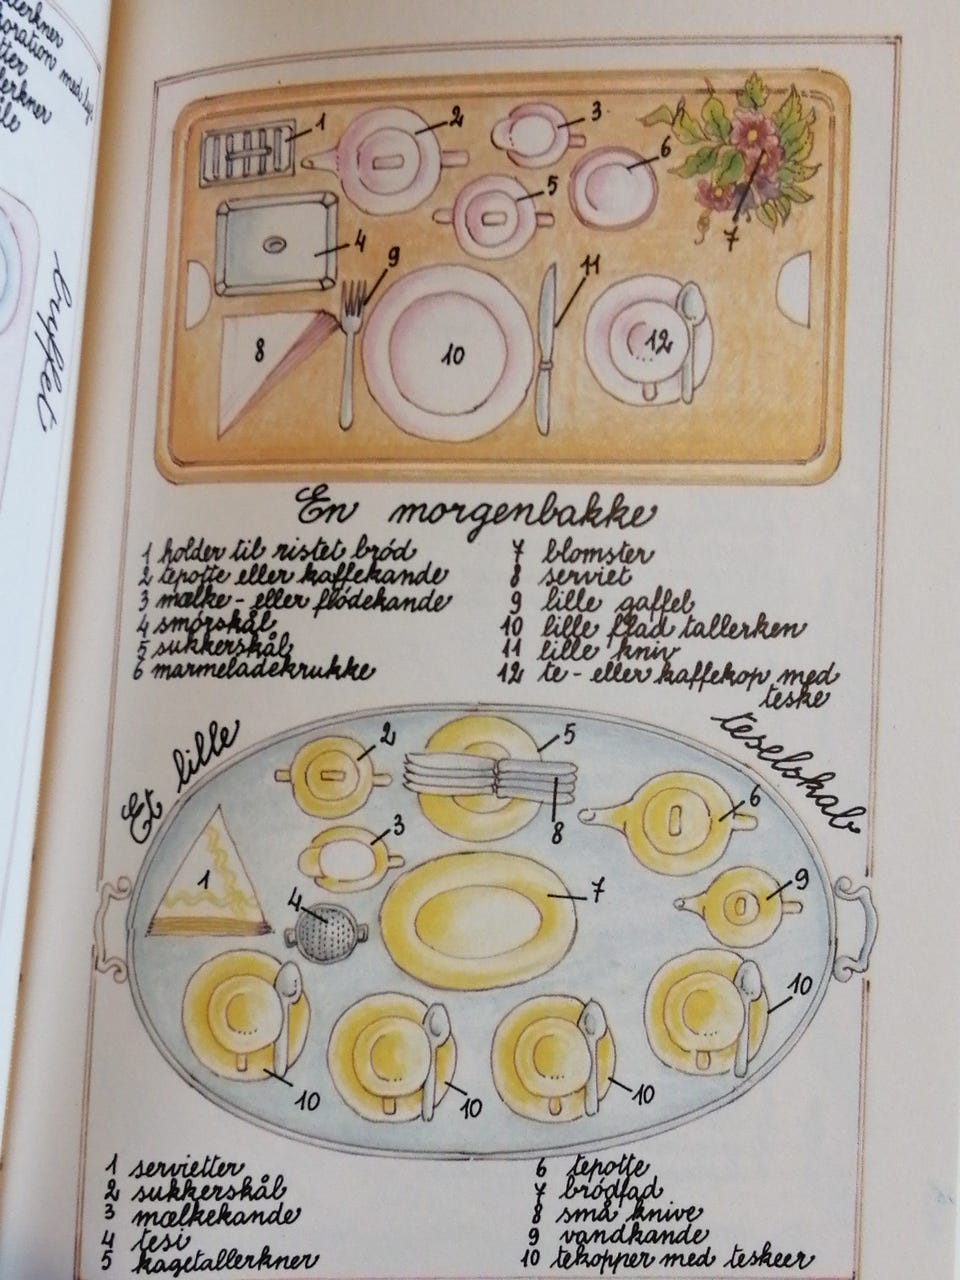 buffet
1
2
3
4
5
6
7
8
9
10
11
12
En morgenbakke
1 holder til ristet bród
2 tepotte eller kaffekande
3 mælke- eller flódekande
4 smórskål
5 sukkerskål
6 marmeladekrukke
7 blomster
8 serviet
9 lille gaffel
10 lille flad tallerken
11 lille kniv
12 te- eller kaffekop med
teske
Et lille teselskab
1
2
3
4
5
6
7
8
9
10
10
10
10
1 servietter
2 sukkerskål
3 mælkekande
4 tesi
5 kagetallerkner
6 tepotte
7 bródfad
8 små knive
9 vandkande
10 tekopper med teskeer